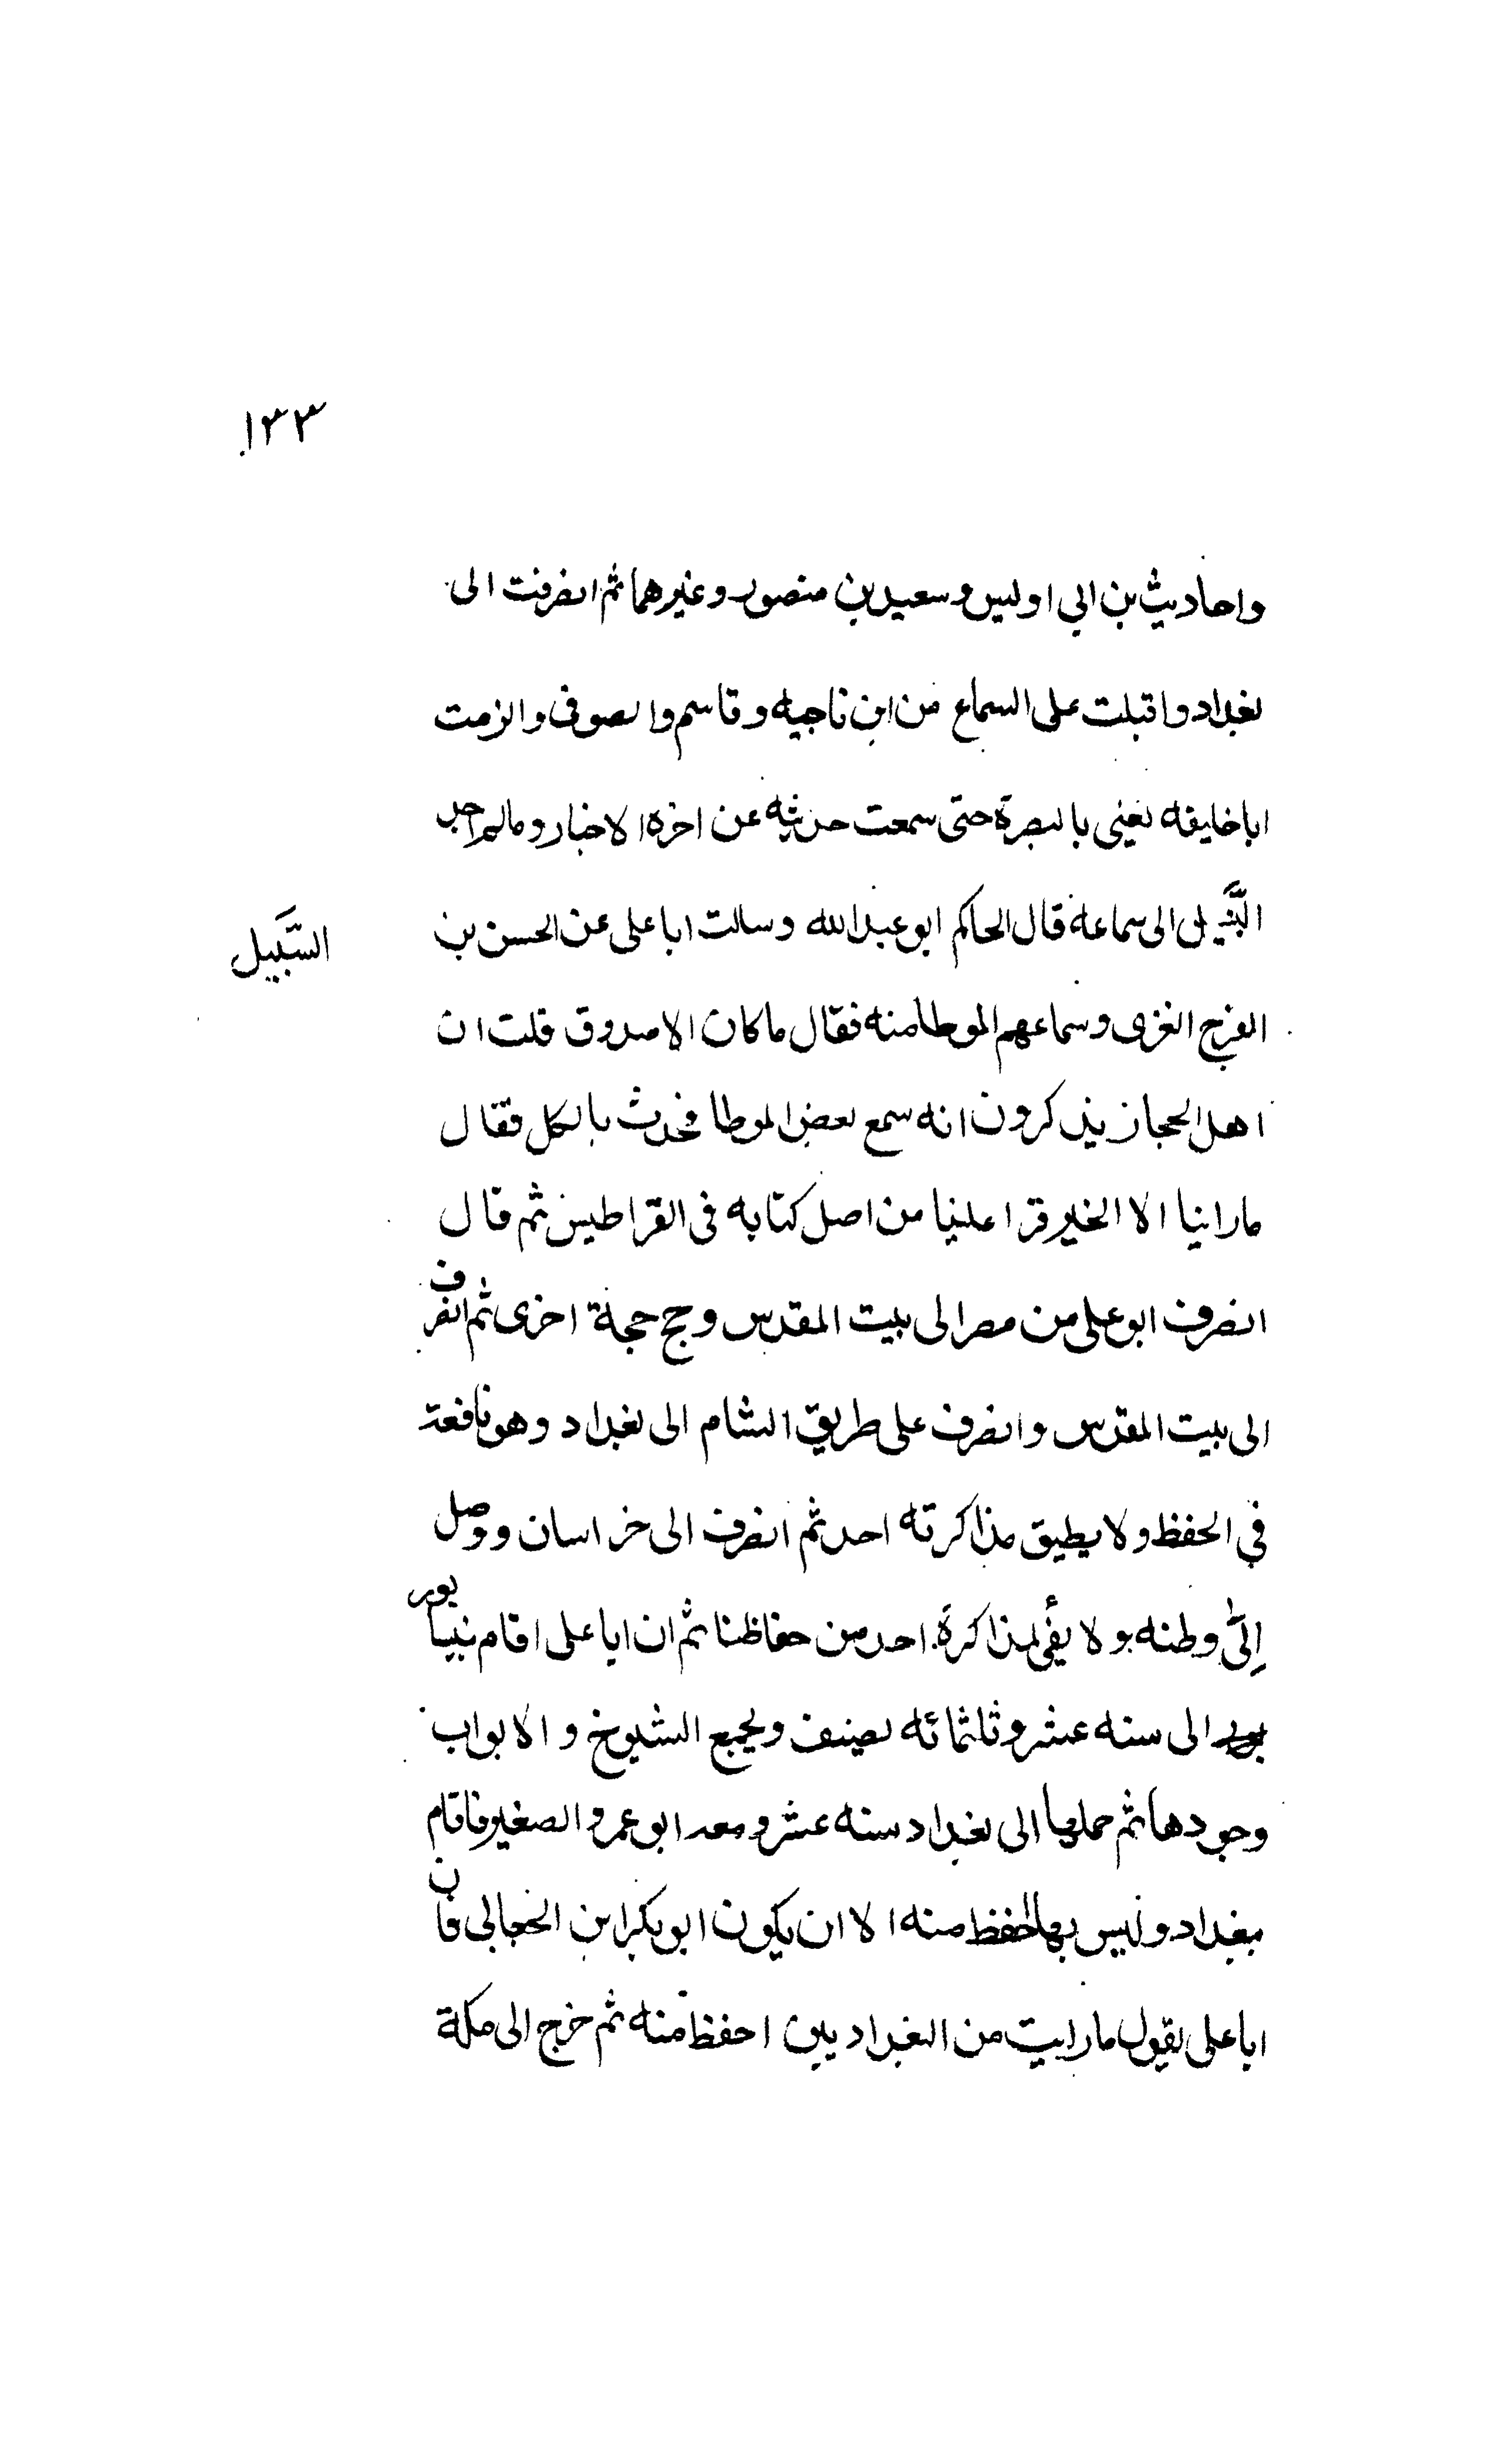 ١٣٣
واحاديث بن ابي اوليس وسعيد بن منصور وغيرهما ثم انصرفت الى
بغداد واقبلت على السماع من ابن ناجيه وقاسم والصوفى والزمت
ابا خليفه يعنى بالبصرة حتى سمعت حديثه عن اخره الاخبار ومالم اجد
الى سماعه قال الحاكم ابو عبد الله وسالت ابا على عن الحسن بن
السَّبيل
الفرج الغزى وسماعهم الموطا منه فقال ما كان الا صدوق قلت ان
اهل الحجاز يذكرون انه سمع بعض الموطا فحدث بالكل فقال
ما راينا الا الخير قرا علينا من اصل كتابه فى القراطيس ثم قال
انصرف ابو على من مصر الى بيت المقدس وحج حجة اخرى ثم انصرف
الى بيت المقدس وانصرف على طريق الشام الى بغداد وهو
في الحفظ ولا يطيق مذاكرته احد ثم انصرف الى خراسان ووصل
إلى وطنه ولا يفى لمذاكرة احد من حفاظنا ثم ان ابا على اقام بنيسابور
الى سنه عشر وثلثمائه يصنف ويجمع الشيوخ والابواب
وجودها ثم حملها الى بغداد سنه عشر ومعه ابو عمرو الصغير فاقام
ببغداد وليس بها احفظ منه الا ان يكون ابو بكر ابن الجعابى فان
ابا على يقول ما رايت من البغداديين احفظ منه ثم خرج الى مكة